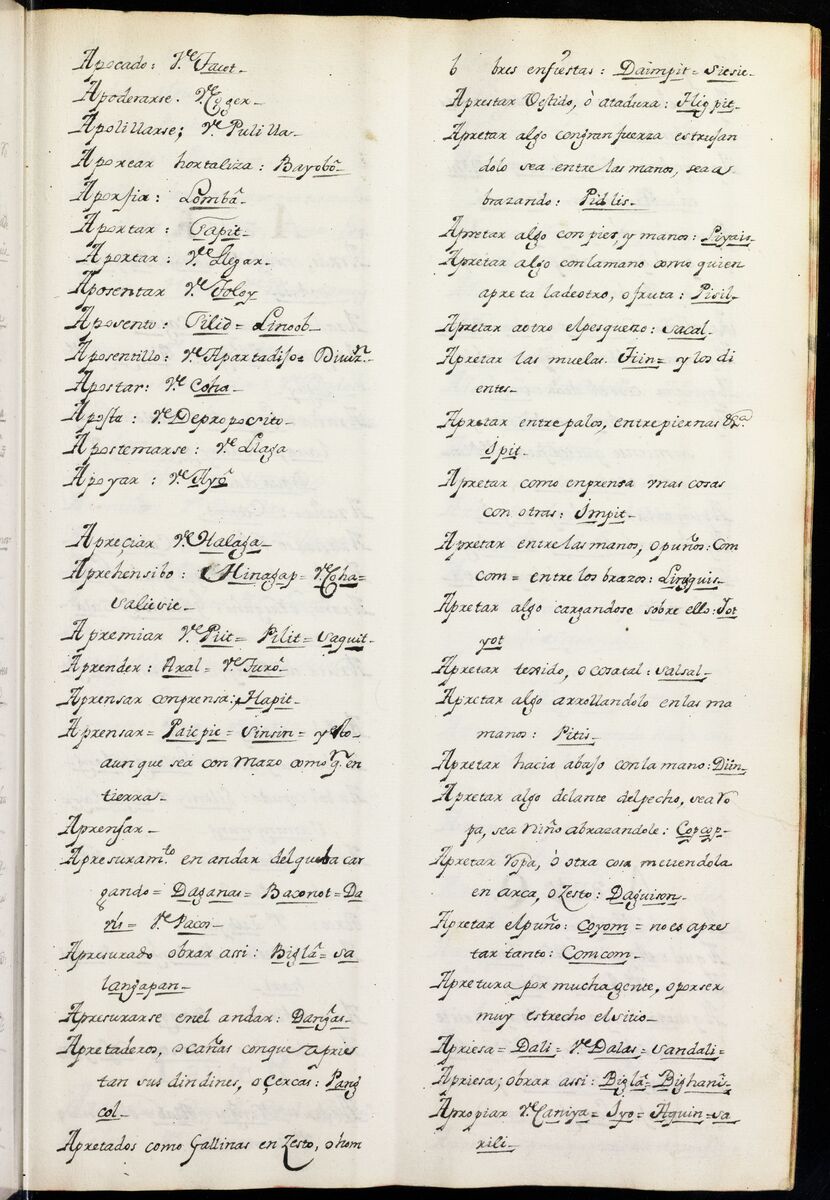 Apocado: Ve. Tacot-
Apoderarse. Ve. Coger-
Apolillarse; Ve. Pulilla-
Aporcar hortaliza: Bayobô-
Aporfia: Lombâ-
Aportar: Tapit-
Aportar: Ve. Llegar-
Aposentar Ve. Toloy
Aposento: Silid= Linoob-
Aposentillo: Ve. Apartadiso=
Apostar: Ve. Coha-
Aposta: Ve. De proposito-
Apostemarse: Ve. Llaga
Apoyar: Ve. Ayô
Apreçiar Ve. Halaga-
Aprehensibo: Hinagap= Ve. Coha=
saliesie-
Apremiar Ve. Piit= Pilit= saquit-
Aprender: Aral= Ve. Turô-
Aprensar conprensa: Hapit-
Aprensar= Paicpic= Sinsin= y esto-
aunque sea con Mazo como qn. en
tierra-
Aprensar-
Apresuramto. en andar del que ba car
gando= Daganas= Baconot= Da
rîs= Ve. Pacos-
Apresurado obrar assi: Biglâ= sa
langapan-
Apresurarse enel andar: Dangas-
Apretaderos, o cañas conque aprie
tan sus dindines, o çercas: Pang
col-
Apretados como Gallinas en Zesto, o hom
b bres enfiestas: Daimpit= siesie-
Aprestar Vestido, ò atadura: Higpit-
Apretar algo congran fuerza estrujan
dolo sea entre las manos, sea a-
brazando: Pidlis-
Apretar algo con pies, y manos: Liyais-
Apretar algo conlamano como quien
aprieta ladeotro, o fruta: Pisil-
Apretar aotro elpesquezo: sacal-
Apretar las muelas. Tiin= y los di
entes-
Apretar entre palos, entre piernas &a.
Ipit-
Apretar como enprensa vnas cosas
con otras: Impit-
Apretar entre las manos, o puños: Com
com= entre los brazos: Lingquis-
Apretar algo cargandose sobre ello: Yot
yot
Apretar texido, o cosatal: salsal-
Apretar algo arrollandolo en las ma
manos: Pitis-
Apretar hacia abajo conla mano: Diin-
Apretar algo delante delpecho, sea ro
pa, sea niño abrazandole: Copcop-
Apretar ropa, ò otra cosa metiendola
en arca, o Zesto: Daguison-
Apretar elpuño: Coyom= no es apre
tar tanto: Comcom-
Apretura por mucha gente, o por ser
muy estrecho el sitio-
Apriesa= Dali= Ve. Dalas= sandali=
Apriesa; obrar assi: Biglâ= Bighanî-
Apropiar Ve. Caniya= Iyo= Aquin= sa
rili-